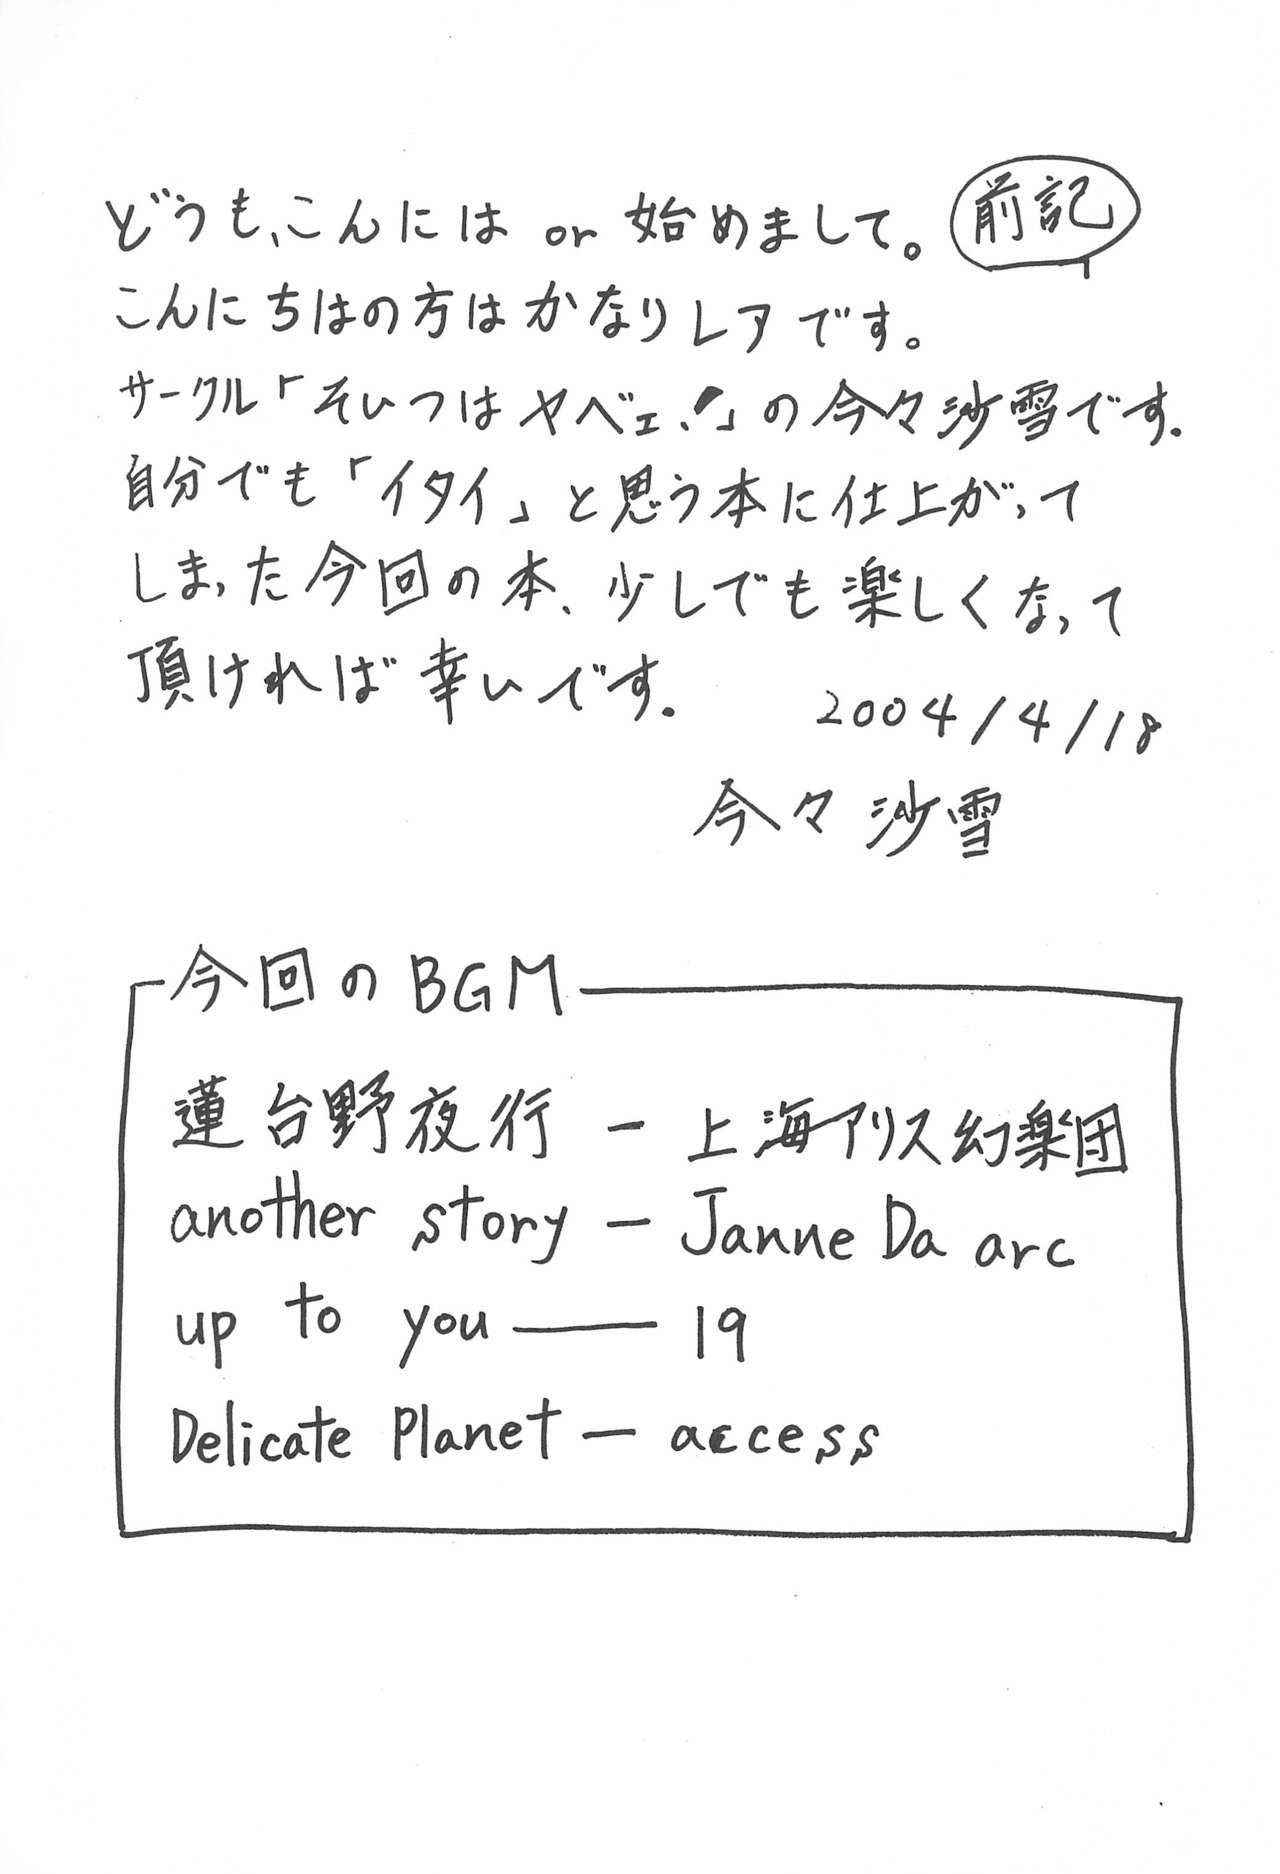 前記
どうも、こんには or 始めまして。
こんにちはの方はかなりレアです。
サークル「そいつはヤベェ!」の今々沙雪です.
自分でも「イタイ」と思う本に仕上がって
しまった今回の本、少しでも楽しくなって
頂ければ幸いです.
2004/4/18
今々沙雪
今回のBGM
蓮台野夜行 - 上海アリス幻楽団
another story - Janne Da arc
up to you — 19
Delicate Planet - access